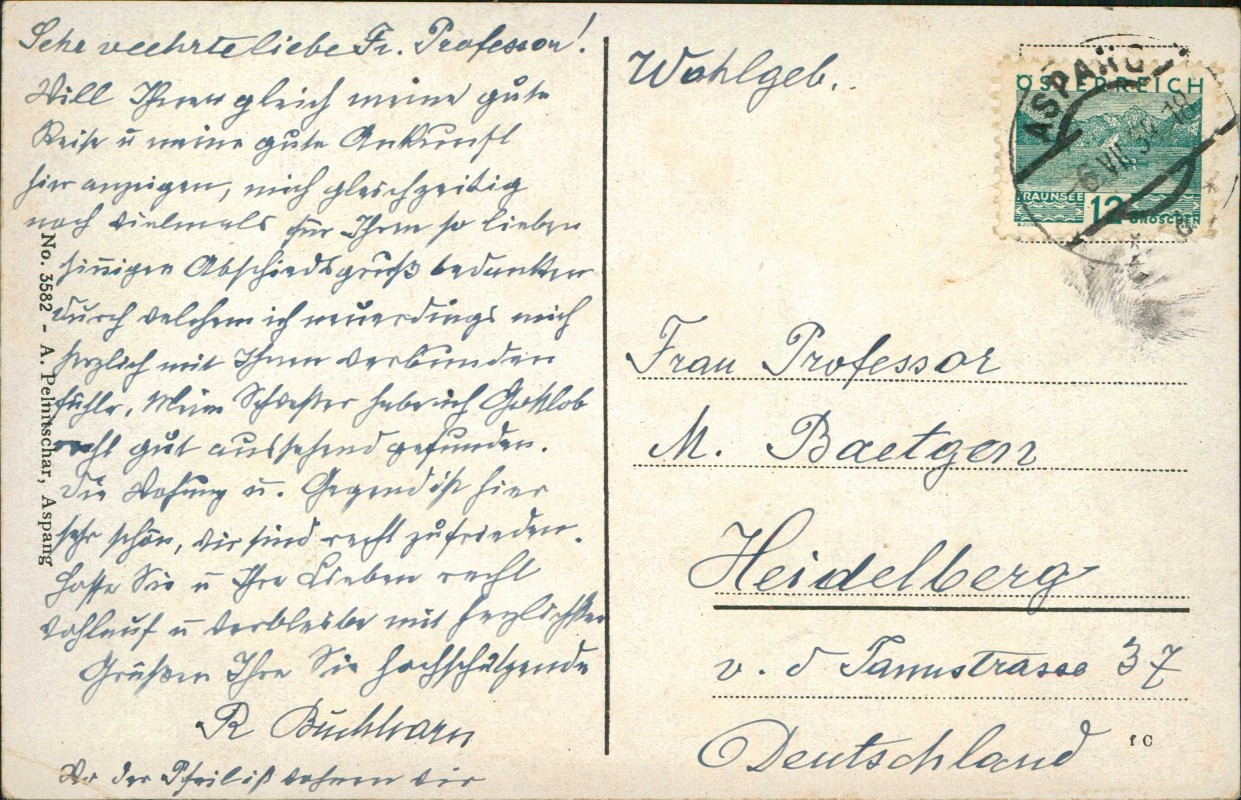 Sehr veehrte liebe Fr. Professor!
Will Ihnen gleich meine gute
Reise u meine gute Ankunft
hier anzeigen, mich gleichzeitig
noch vielmals für Ihren so lieben
sinnigen Abschiedsgruß bedanken
durch welchem ich neuerdings mich
herzlich mit Ihnen verbunden
fühle, Meine Schwester habe ich Gottlob
recht gut aussehend gefunden.
Die Wohnung u. Gegend ist hier
sehr schön, wir sind recht zufrieden.
Hoffe Sie u Ihre Lieben recht
wohlauf u verbleibe mit herzlichsten
Grüßen Ihre Sie hochschätzende
R Buchhorn
Wo der Pfeil ist wohnen wir
No. 3582 - A. Pelnitschar, Aspang
Wohlgeb.
ÖSTERREICH
TRAUNSEE
12
GROSCHEN
ASPANG
-6.VII. 18
Frau Professor
M. Baetgen
Heidelberg
v. d Tannstrasse 37
Deutschland
f C